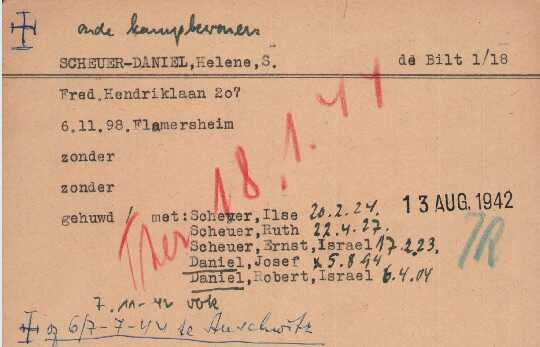 oude kampbewoners
SCHEUER-DANIEL,Helene,S. de Bilt 1/18
Fred.Hendriklaan 207
6.11.98.Flamersheim
zonder
zonder
gehuwd / met:Scheuer,Ilse 20.2.24. 13 AUG. 1942
Scheuer,Ruth 22.4.27.
Scheuer,Ernst,Israel 17.2.23.
Daniel,Josef x 5.8.94
Daniel,Robert,Israel 6.4.04
Ther 18.1.44
7.11-42 VBK
op 6/7-7-44 te Auschwitz